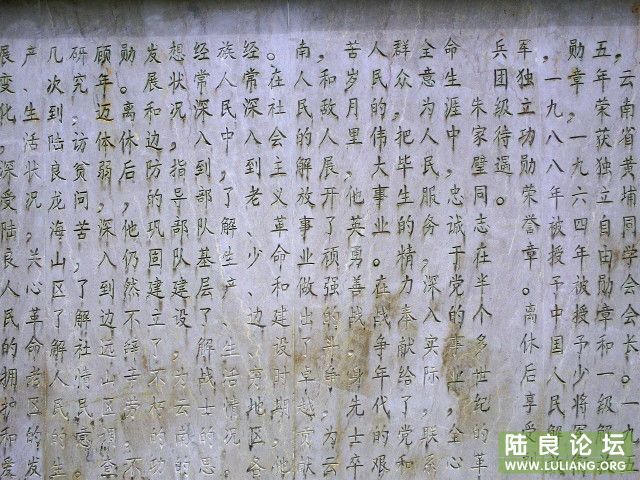 ，云南省黄埔同学会会长。一九五
五年荣获独立自由勋章和一级解
勋章，一九六四年被授予少将军
一九八八年被授予中国人民解
军独立功勋荣誉章。离休后享受
兵团级待遇。
朱家璧同志在半个多世纪的革
命生涯中，忠诚于党的事业，全心
全意为人民服务，深入实际，联系
群众，把毕生的精力奉献给了党和
人民的伟大事业。在战争年代的艰
苦岁月里，他英勇善战，身先士卒
，和敌人展开了顽强的斗争，为云
南人民的解放事业做出了卓越贡献
。在社会主义革命和建设时期，他
经常深入到老、少、边、穷地区各
族人民中，了解生产、生活情况
经常深入到部队基层了解战士的思
想状况，指导部队建设，为云南的
发展和边防的巩固建立了不朽的功
勋。离休后，他仍然不辞辛劳，不
顾年迈体弱，深入到边远山区调查
研究，访贫问苦，了解社情民意。
几次到陆良龙海山区了解人民的生
产、生活状况，关心革命老区的发
展变化，深受陆良人民的拥护和爱
陆良论坛
WWW.LULIANG.ORG